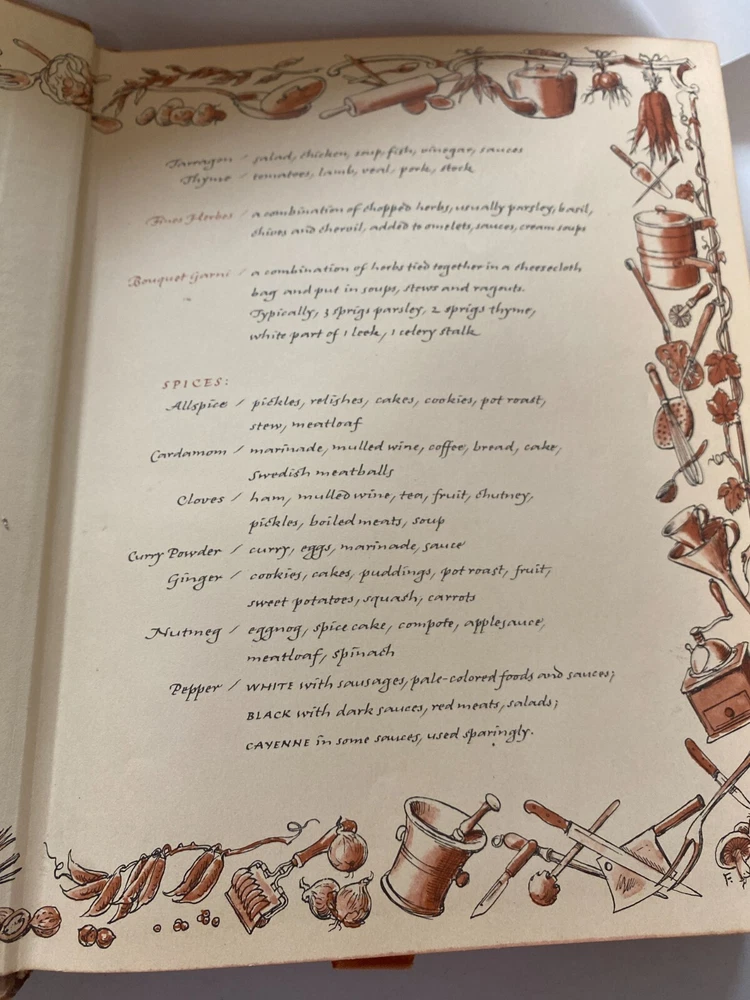 Tarragon / salad, chicken, soup, fish, vinegar, sauces
Thyme / tomatoes, lamb, veal, pork, stock
Fines Herbes / a combination of chopped herbs, usually parsley, basil,
chives and chervil, added to omelets, sauces, cream soups
Bouquet Garni / a combination of herbs tied together in a cheesecloth
bag and put in soups, stews and ragouts.
Typically, 3 sprigs parsley, 2 sprigs thyme,
white part of 1 leek, 1 celery stalk
SPICES:
Allspice / pickles, relishes, cakes, cookies, pot roast,
stew, meatloaf
Cardamom / marinade, mulled wine, coffee, bread, cake,
Swedish meatballs
Cloves / ham, mulled wine, tea, fruit, chutney,
pickles, boiled meats, soup
Curry Powder / curry, eggs, marinade, sauce
Ginger / cookies, cakes, puddings, pot roast, fruit,
sweet potatoes, squash, carrots
Nutmeg / eggnog, spice cake, compote, applesauce,
meatloaf, spinach
Pepper / WHITE with sausages, pale-colored foods and sauces;
BLACK with dark sauces, red meats, salads;
CAYENNE in some sauces, used sparingly.